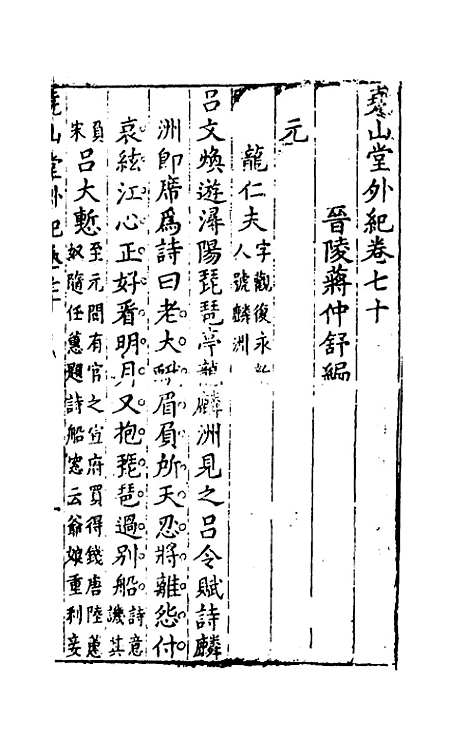 堯山堂外紀卷七十
晉陵蔣仲舒編
元
龍仁夫字觀復永新人號麟洲
呂文煥遊潯陽琵琶亭龍麟洲見之呂令賦詩麟
洲即席爲詩曰老大蛾眉負所天忍將離怨付
哀絃江心正好看明月又抱琵琶過別船詩意譏其
負宋呂大慙至元間有官之宣府買得錢唐陸蕙奴隨任蕙題詩船窓云爺娘重利妾
堯山堂外紀卷七十
一